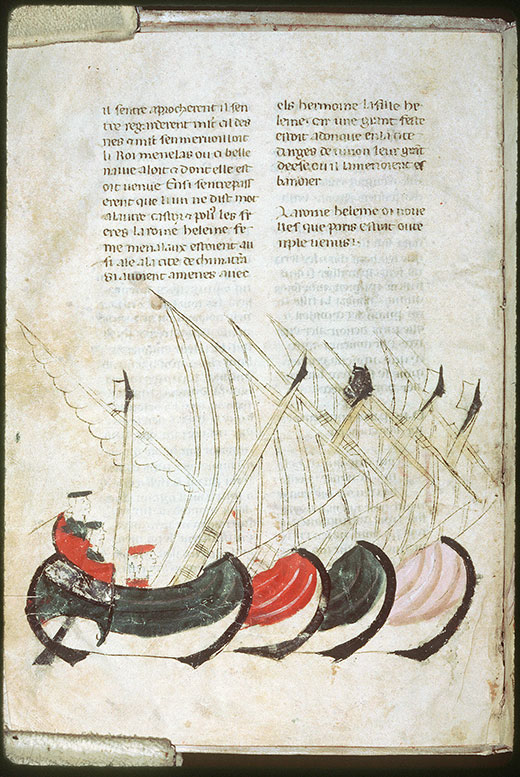 il sentre aprocherent il sen
tre regarderent mlt cil des
nes ⁊ mlt senmervoilloit
li Roi menelas ou ci belle
navie aloit ⁊ dont elle est
oit venue Ensi sentrepas
erent que li un ne dist mot
a lautre castor ⁊ polꝰ les fr
eres la roine heleine fe
me menalaux estoient au
si ale a la cite de
si avoient amenee avec
els hermoine la fille he
leine Car une grant feste
estoit adonque en la cite
darges de iunon leur grāt
deesse ou il
La roine heleine oi nove
lles que paris estoit ou te
mple venus